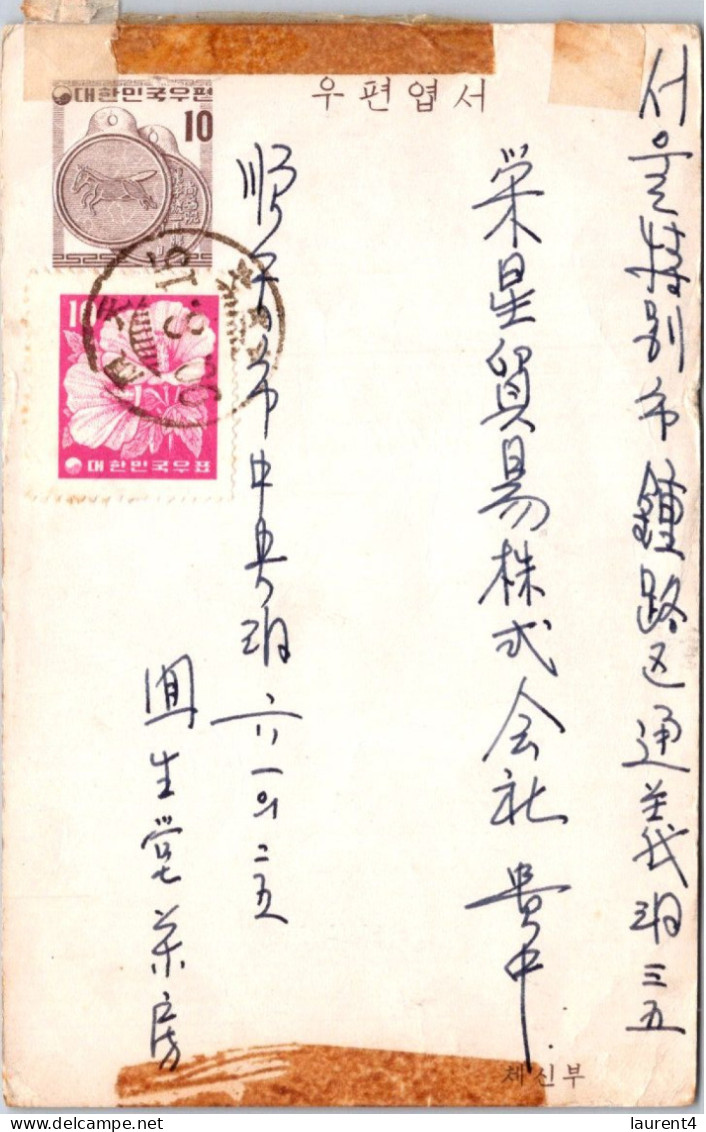 우편엽서
대한민국우편
10
10
대한민국우표
서울特別市 鍾路区 通義洞 三五
栄星貿易株式会社 貴中
順天市 中央洞 六一의二五
生堂薬房
체신부
delcampe.net
laurent4